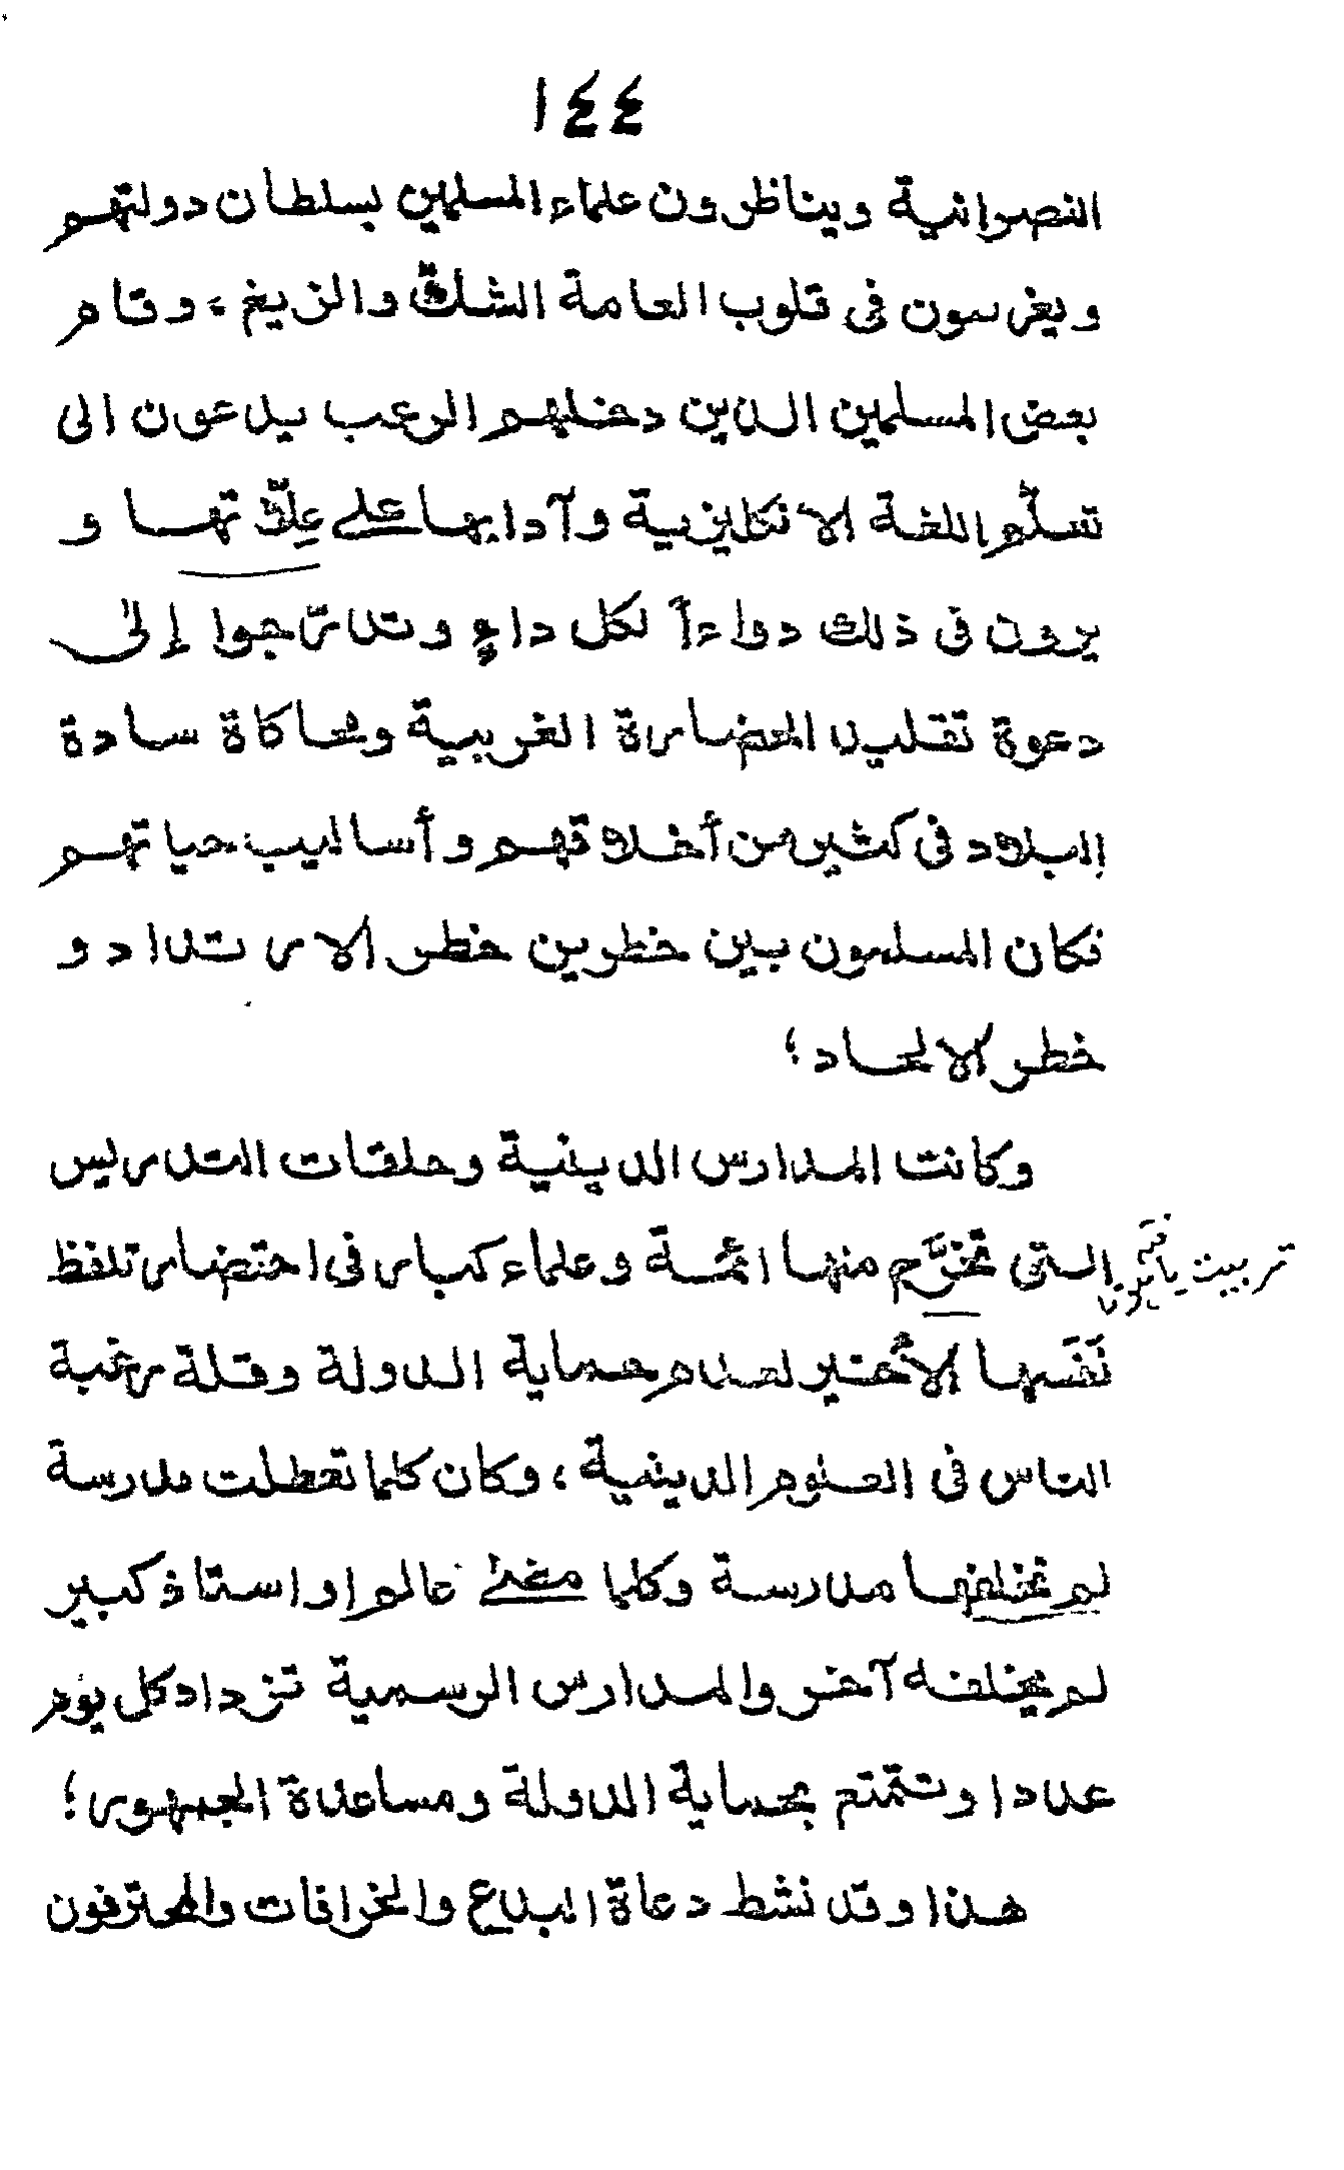 ١٤٤
النصرانية ويناظرون علماء المسلمين بسلطان دولتهم
ويغرسون في قلوب العامة الشكّ والزيغ، وقام
بعض المسلمين الذين دخلهم الرعب يدعون الى
تعلّم اللغة الانكليزية وآدابها على عِلّاتها و
يرون في ذلك دواءاً لكل داءٍ وتدرّجوا إلى
دعوة تقليد الحضارة الغربية ومحاكاة سادة
البلاد في كثير من أخلاقهم وأساليب حياتهم
فكان المسلمون بين خطرين خطر الارتداد و
خطر الالحاد؛
وكانت المدارس الدينية وحلقات التدريس
التي تخرَّج منها ائمة وعلماء كبار في احتضار تلفظ
نَفَسها الأخير لعدم حماية الدولة وقلة رغبة
الناس في العلوم الدينية، وكان كلما تعطلت مدرسة
لم تخلفها مدرسة وكلما مضى عالم او استاذ كبير
لم يخلفه آخر والمدارس الرسمية تزداد كل يوم
عددا وتتمتع بحماية الدولة ومساعدة الجمهور؛
هذا وقد نشط دعاة البدع والخرافات والمحترفون
تربيت يافتہ